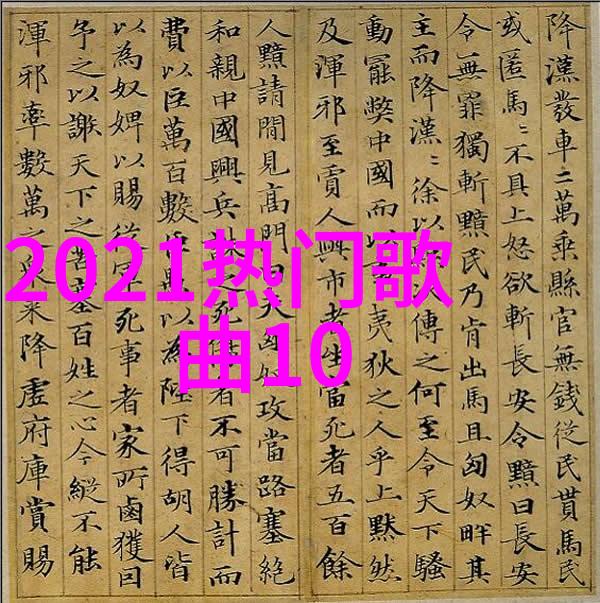 降漢發車二萬乘縣官無錢從民貰馬民
或匿馬〻不具上怒欲斬長安令黯曰長安
令無罪獨斬黯民乃肯出馬且匈奴畔其
主而降漢〻徐以傳之何至令天下騷
動罷弊中國而以夷狄之人乎上黙然
及渾邪至賈人與市者坐當死者五百餘
人黯請閒見高門曰夫匈奴攻當路塞絕
和親中國興兵之死傷者不可勝計而
費以巨萬百數臣以為陛下得胡人皆
以為奴婢以賜從死事者家所鹵獲因
予之以謝天下之苦塞百姓之心今縱不能
渾邪率數萬之來降虛府庫賞賜
2021热门歌
曲10